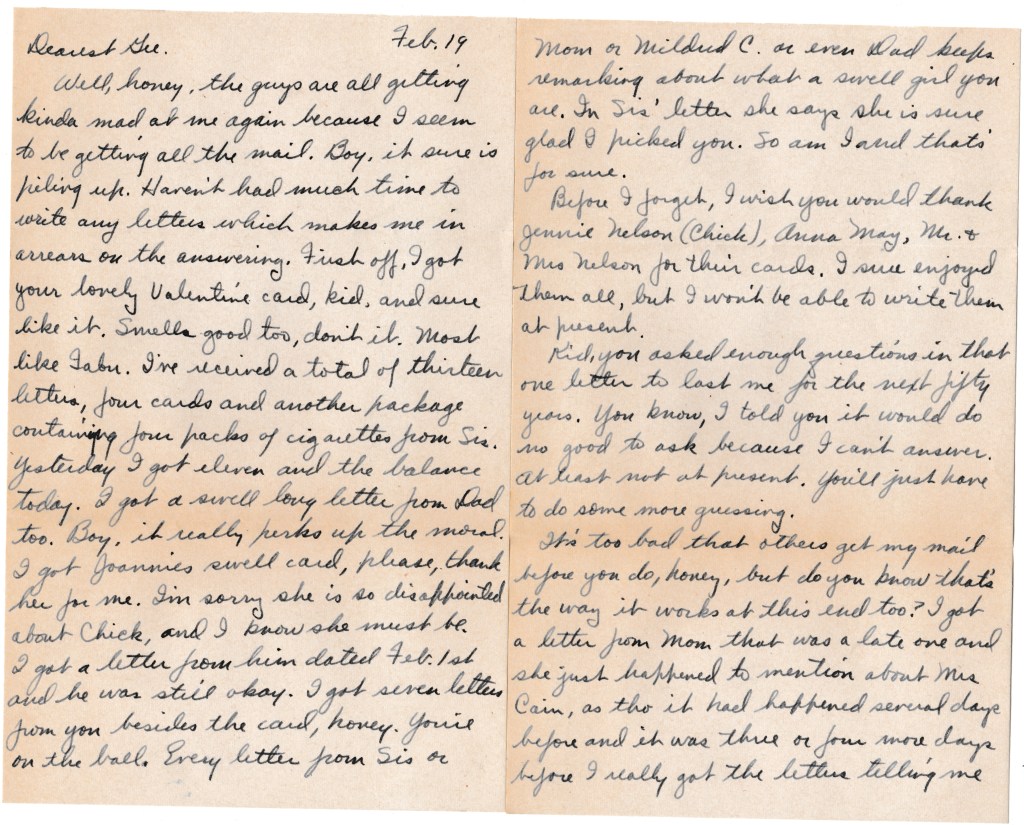 Dearest Gee. Feb. 19
Well, honey, the guys are all getting
kinda mad at me again because I seem
to be getting all the mail. Boy, it sure is
piling up. Haven't had much time to
write any letters which makes me in
arrears on the answering. First off, I got
your lovely Valentine card, kid, and sure
like it. Smells good too, don't it. Most
like Tabu. I've received a total of thirteen
letters, four cards and another package
containing four packs of cigarettes from Sis.
Yesterday I got eleven and the balance
today. I got a swell long letter from Dad
too. Boy, it really perks up the moral.
I got Joannies swell card, please, thank
her for me. I'm sorry she is so disappointed
about Chick, and I know she must be.
I got a letter from him dated Feb. 1st
and he was still okay. I got seven letters
from you besides the card, honey. You're
on the ball. Every letter from Sis or
Mom or Mildred C. or even Dad keeps
remarking about what a swell girl you
are. In Sis' letter she says she is sure
glad I picked you. So am I and that's
for sure.
Before I forget, I wish you would thank
Jennie Nelson (Chick), Anna May, Mr. &
Mrs Nelson for their cards. I sure enjoyed
them all, but I won't be able to write them
at present.
Kid, you asked enough questions in that
one letter to last me for the next fifty
years. You know, I told you it would do
no good to ask because I can't answer.
At least not at present. You'll just have
to do some more guessing.
It's too bad that others get my mail
before you do, honey, but do you know that's
the way it works at this end too? I got
a letter from Mom that was a late one and
she just happened to mention about Mrs
Cain, as tho it had happened several days
before and it was three or four more days
before I really got the letters telling me